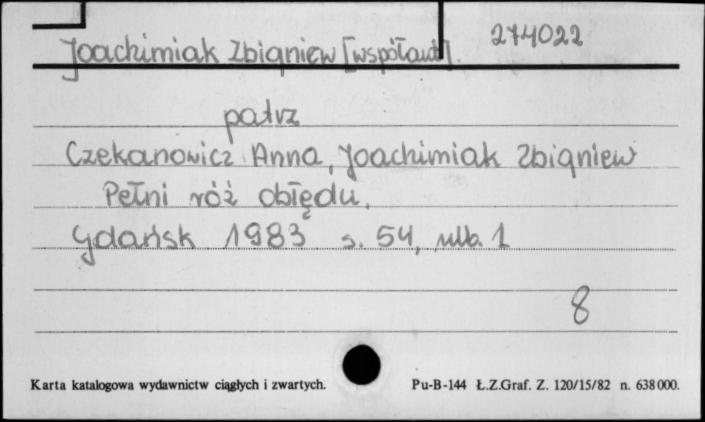 Joachimiak Zbigniew [współaut]. 274022
patrz
Czekanowicz Anna, Joachimiak Zbigniew
Pełni róż obłędu.
Gdańsk 1983 s. 54, nlb. 1
8
Karta katalogowa wydawnictw ciągłych i zwartych. Pu-B-144 Ł.Z.Graf. Z. 120/15/82 n. 638 000.